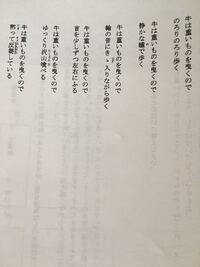 牛は重いものを曳くので
のろりのろり歩く
牛は重いものを曳くので
静かな瞳で歩く
牛は重いものを曳くので
輪の音にきゝ入りながら歩く
牛は重いものを曳くので
首を少しずつ左右にふる
牛は重いものを曳くので
ゆっくり沢山喰べる
牛は重いものを曳くので
黙って反芻している